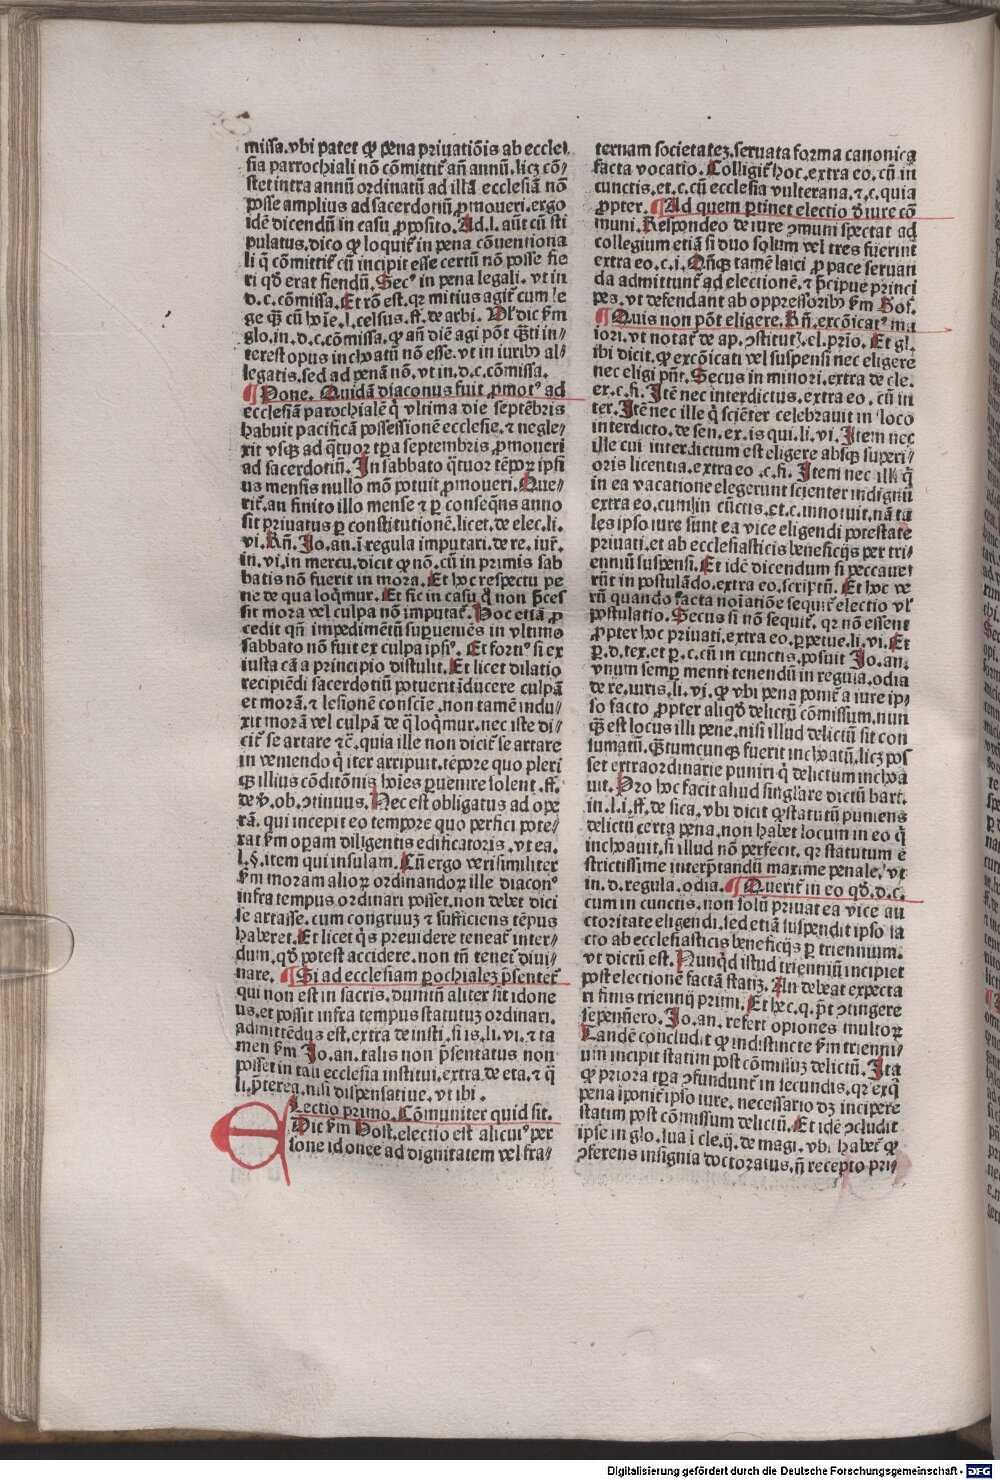 missa. vbi patet ꝙ pena priuatiõis ab eccle⸗
sia parrochiali nõ cõmittit᷑ añ annũ. licꝫ cõ⸗
stet intra annũ ordinatũ ad illã ecclesiã nõ
posse amplius ad sacerdotiũ ꝓmoueri. ergo
idẽ dicendũ in casu ꝓposito. Ad. l. aũt cũ sti
pulatus. dico ꝙ loquit᷑ in pena cõuentiona
li q̃ cõmittit᷑ cũ incipit esse certũ nõ posse fie
ri qd̃ erat fiendũ. Secꝰ in pena legali. vt in
d. c. cõmissa. Et rõ est. qꝛ mitius agit᷑ cum le
ge qᷓꝫ cũ hoĩe. l. celsus. ff. de arbi. Uł dic ẜm
glo. in. d. c. cõmissa. ꝙ añ diẽ agi põt qᷓꝫti in⸗
terest opus inchoatũ nõ esse. vt in iuribꝫ al⸗
legatis. sed ad penã nõ. vt in. d. c. cõmissa.
¶ Pone. Quidã diaconus fuit ꝓmotꝰ ad
ecclesiã parochialẽ q̇ vltima die septẽbris
habuit pacificã possessionẽ ecclesie. ⁊ negle⸗
xit vsqꝫ ad q̃tuor tꝑa septembris ꝓmoueri
ad sacerdotiũ. In sabbato q̃tuor tẽpoꝝ ipsi
us mensis nullo mõ potuit ꝓmoueri. Que⸗
rit᷑. an finito illo mense ⁊ ꝑ conseq̃ns anno
sit priuatus ꝑ constitutionẽ. licet. de elec. li.
vi. Rñ. Jo. an. ĩ regula imputari. de re. iur̃.
in. vi. in mercu. dicit ꝙ nõ. cũ in primis sab
batis nõ fuerit in mora. Et hoc respectu pe
ne de qua loq̃mur. Et sic in casu q̊ non p̃ces
sit mora vel culpa nõ imputat᷑. Hoc etiã ꝓ
cedit qñ impedimẽtũ suꝑueniẽs in vltimo
sabbato nõ fuit ex culpa ipsiꝰ. Et fortiꝰ si ex
iusta cã a principio distulit. Et licet dilatio
recipiẽdi sacerdotiũ potuerit ĩducere culpã
et morã. ⁊ lesionẽ consciẽ. non tamẽ indu⸗
xit morã vel culpã de q̃ loq̃mur. nec iste di⸗
cit᷑ se artare ⁊c̃. quia ille non dicit᷑ se artare
in veniendo q̇ iter arripuit. tẽpore quo pleri
qꝫ illius cõditõnis hoĩes ꝑuenire solent. ff.
de ṽ. ob. ↄtinuus. Nec est obligatus ad ope
rã. qui incepit eo tempore quo perfici pote⸗
rat ẜm oꝑam diligentis edificatoris. vt ea.
l. §. item qui insulam. Cũ ergo verisimiliter
ẜm moram alioꝝ ordinandoꝝ ille diaconꝰ
infra tempus ordinari posset. non debet dici
se artasse. cum congruuꝫ ⁊ sufficiens tẽpus
haberet. Et licet q̇s preuidere teneat᷑ inter⸗
dum. qd̃ potest accidere. non tñ tenet᷑ diui⸗
nare. ¶ Si ad ecclesiam ꝑochialeꝫ p̃sentet᷑
qui non est in sacris. dummõ aliter sit idone
us. et possit infra tempus statutuꝫ ordinari.
admittẽdus est. extra de insti. si is. li. vi. ⁊ ta
men ẜm Jo. an. talis non p̃sentatus non
posset in tali ecclesia institui. extra de eta. ⁊ q̃
li. p̃terea. nisi dispensatiue. vt ibi.
Electio primo. Cõmuniter quid sit.
Dic ẜm Host. electio est alicuiꝰ per
sone idonee ad dignitatem vel fra⸗
ternam societateꝫ. seruata forma canonica
facta vocatio. Colligit᷑ hoc. extra eo. cũ in
cunctis. et. c. cũ ecclesia vulterana. ⁊. c. quia
ꝓpter. ¶ Ad quem ꝑtinet electio d̃ iure cõ
muni. Respondeo de iure ↄmuni spectat ad
collegium etiã si duo solum vel tres fuerint
extra eo. c. i. Qñqꝫ tamẽ laici ꝓ pace seruan
da admittunt᷑ ad electionẽ. ⁊ p̃cipue princi
pes. vt defendant ab oppressoribꝫ ẜm Hos̃.
¶ Quis non põt eligere. Rñ. excõicatꝰ ma
iori. vt notat᷑ de ap. ↄstitutꝫ. el. prio. Et gl.
ibi dicit. ꝙ excõicati vel suspensi nec eligere
nec eligi pñt. Secus in minori. extra de cle.
ex. c. fi. Itẽ nec interdictus. extra eo. cũ in
ter. Itẽ nec ille q̇ sciẽter celebrauit in loco
interdicto. de sen. ex. is qui. li. vi. Item nec
ille cui interdictum est eligere absqꝫ superi⸗
oris licentia. extra eo. c. fi. Item nec illi q̇
in ea vacatione elegerunt scienter indignũ
extra eo. cum in cũctis. et. c. innotuit. nã ta
les ipso iure sunt ea vice eligendi potestate
priuati. et ab ecclesiasticis beneficijs per tri⸗
enniũ suspensi. Et idẽ dicendum si peccaue⸗
rũt in postulãdo. extra eo. scriptũ. Et hoc ve
rũ quando facta noĩatiõe sequit᷑ electio vł
postulatio. Secus si nõ sequit᷑. qꝛ nõ essent
ꝓpter hoc priuati. extra eo. ꝑpetue. li. vi. Et
ꝑ. d. tex. et ꝑ. c. cũ in cunctis. posuit Jo. an.
vnum semꝑ menti tenendũ in regula. odia
de re. iuris. li. vi. ꝙ vbi pena ponit᷑ a iure ip⸗
so facto ꝓpter aliqd̃ delictũ cõmissum. nun
qᷓꝫ est locus illi pene. nisi illud delictũ sit con
sumatũ. qᷓꝫtumcunqꝫ fuerit inchoatũ. licꝫ pos
set extraordinarie puniri q̇ delictum inchoa
uit. Pro hoc facit aliud singlare dictũ bart.
in. l. i. ff. de sica. vbi dicit ꝙ statutũ puniens
delictũ certa pena. non habet locum in eo q̇
inchoauit. si illud nõ perfecit. qꝛ statutum ẽ
strictissime interp̃tandũ maxime penale. vt
in. d. regula. odia. ¶ Querit᷑ in eo qd̃. d. c.
cum in cunctis. non solũ priuat ea vice au
ctoritate eligendi. sed etiã suspendit ipso fa
cto ab ecclesiasticis beneficijs ꝑ triennium.
vt dictũ est. Nunqd̃ istud trienniũ incipiet
post electionẽ factã statiꝫ. An debeat expecta
ri finis triennij primi. Et hec. q. p̃t ↄtingere
sepenũero. Jo. an. refert opiones multoꝝ
Tandẽ concludit ꝙ indistincte ẜm trienni⸗
um incipit statim post cõmissuꝫ delictũ. Ita
ꝙ priora tꝑa ↄfundunt᷑ in secundis. qꝛ exq̊
pena iponit᷑ ipso iure. necessario dꝫ incipere
statim post cõmissum delictũ. Et idẽ ↄcludit
ipse in glo. sua ĩ cle. ij. de magi. vbi habet᷑ ꝙ
ↄferens insignia doctoratus. ñ recepto pri⸗
Digitalisierung gefördert durch die Deutsche Forschungsgemeinschaft - DFG